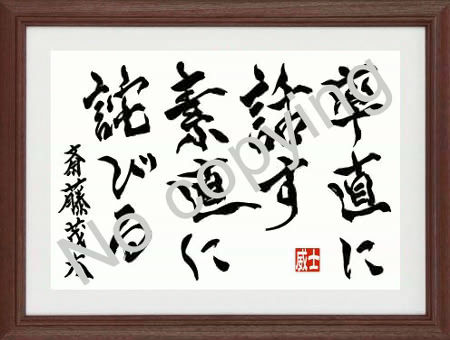 率直に
話す
素直に
詫びる
斎藤茂太
威士
No copying